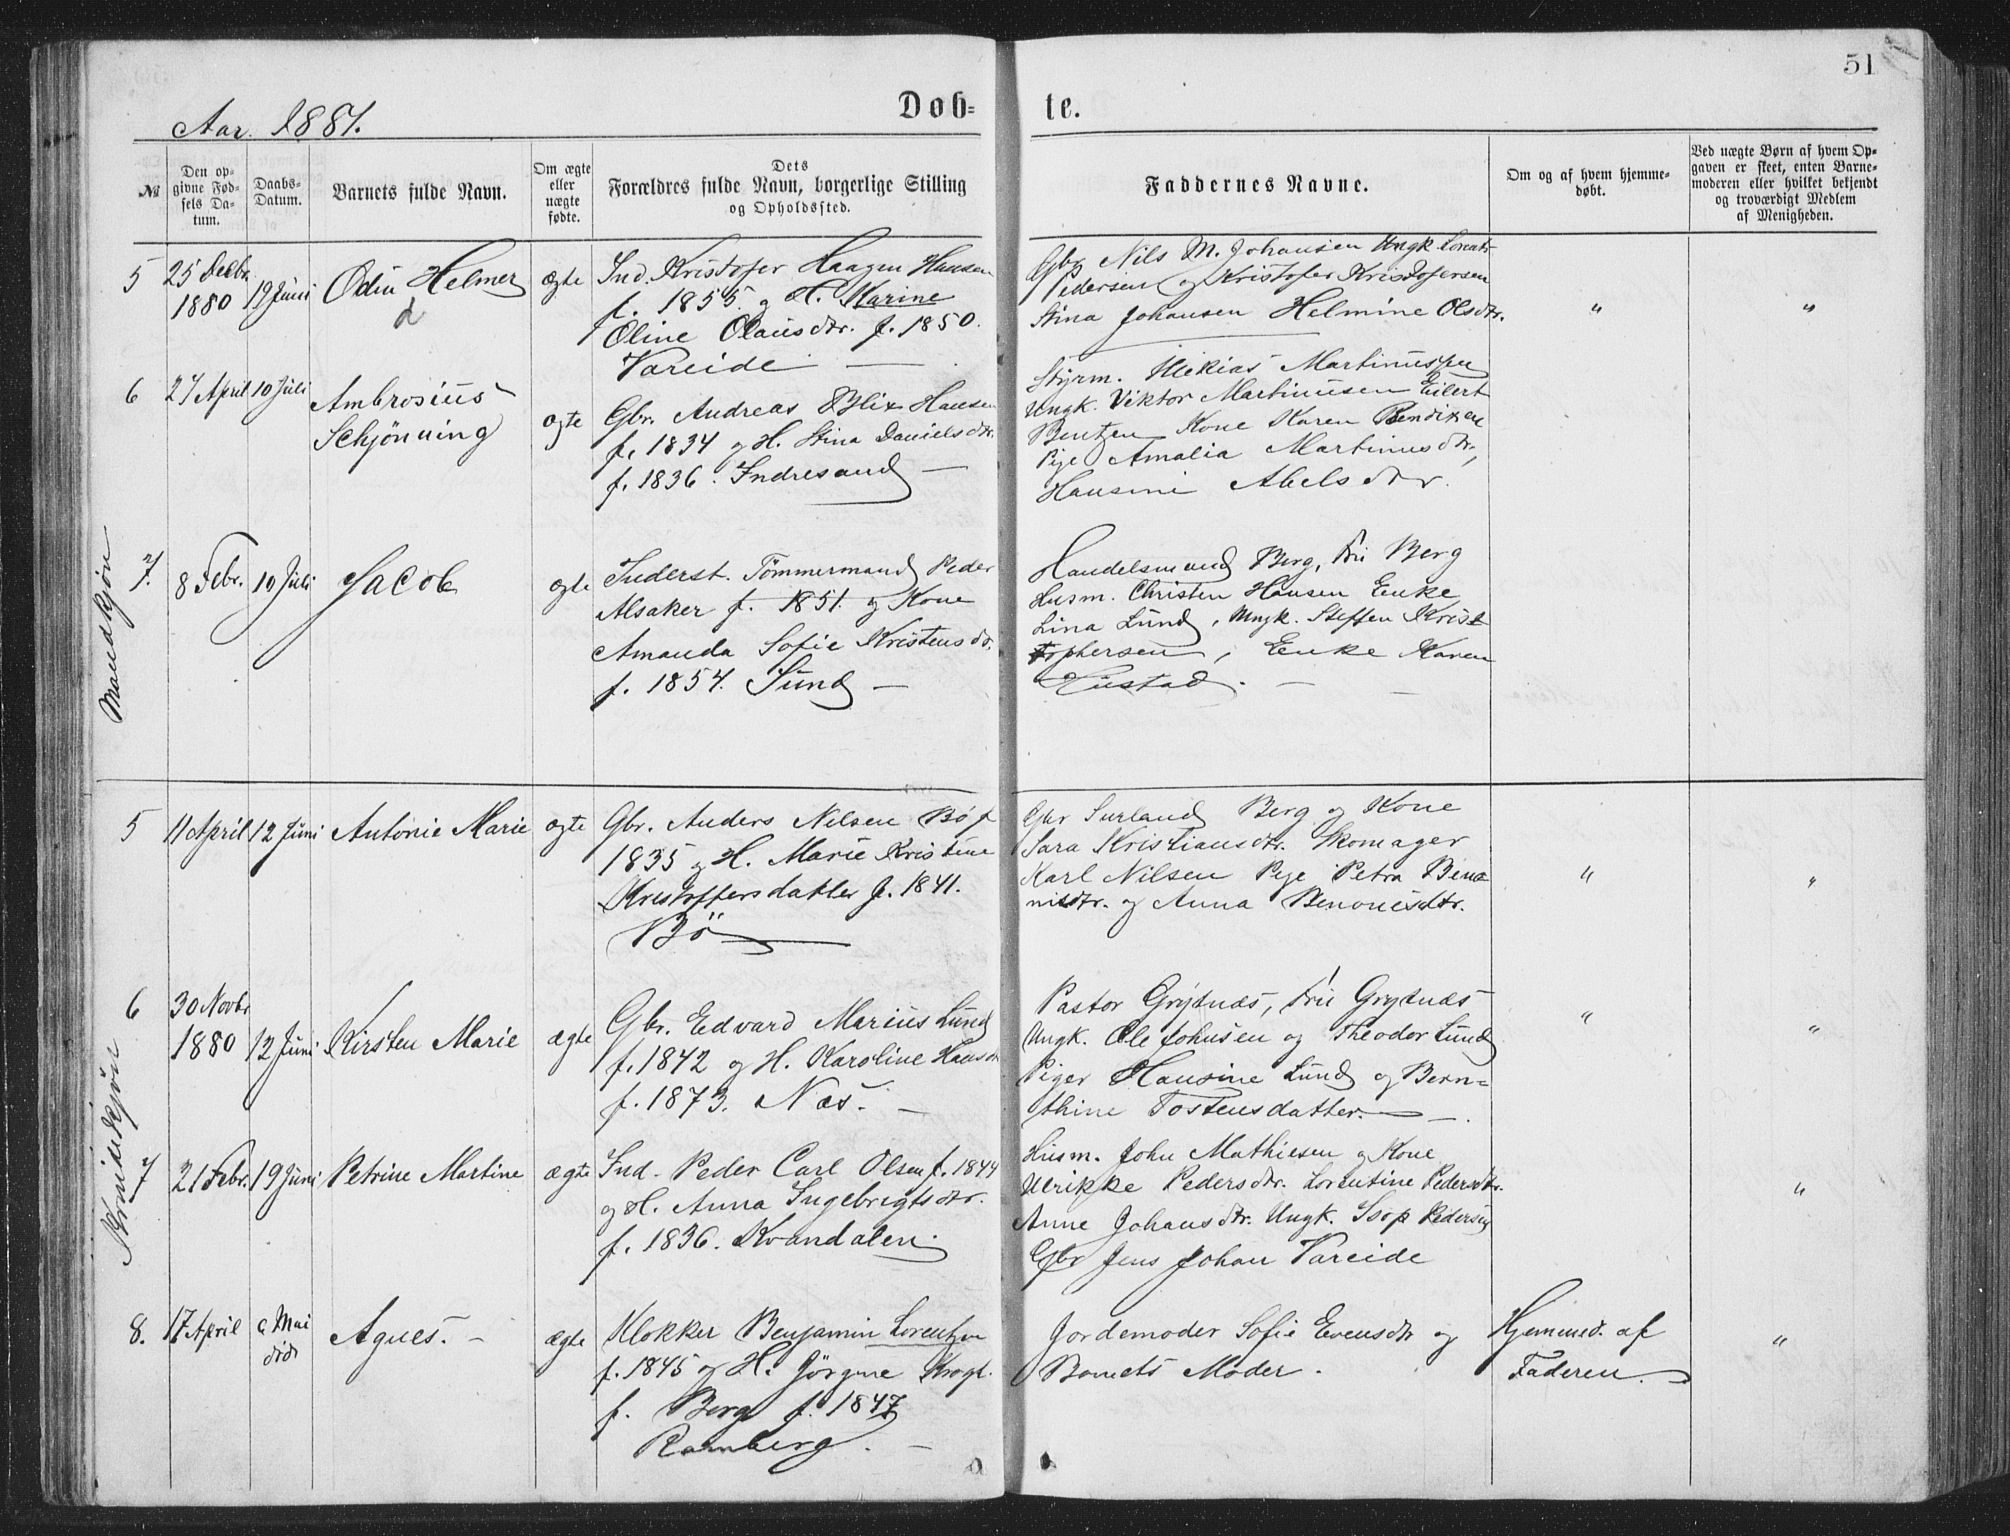 51
Aar 1881.
Døb= te.
№
Den op-
givne Fød-
sels Da-
tum.
Daabs-
Datum.
Barnets fulde Navn.
Om ægte
eller
uægte
fødte.
Dets
Forældres fulde Navn, borgerlige Stilling
og Opholdssted.
Faddernes Navne.
Om og af hvem hjemme-
døbt.
Ved uægte Børn af hvem Op-
gaven er skeet, enten Barne-
moderen eller hvilket bekjendt
og troværdigt Medlem
af Menigheden.
Mandkjøn
5
25 Decbr
1880
19 Juni
Odin Helmer
ægte
Ind. Kristofer Haagen Hansen
f. 1855 og H. Karine
Oline Olausdtr. f. 1850.
Vareide —
Gbr Nils M. Johansen Ungk Lorents
Pedersen og Kristofer Kristofersen
Stina Johansen Helmine Olsdtr.
"
"
6
27 April
10 Juli
Ambrosius
Schjønning
ægte
Gbr. Andreas Blix Hansen
f. 1834 og H. Stina Danielsdtr.
f. 1836. Indresand —
Styrm. Mekias Martinussen
Ungk. Viktor Martinusen Eilert
Bentzen Kone Karen Bendixen
Pige Amalia Martinusdtr,
Hansine Abelsdtr.
7.
8 Febr.
10 Juli
Jacob
ægte
Inderst. Tømmermand Peder
Alsaker f. 1851. og Kone
Amanda Sofie Kristensdtr.
f. 1854. Sund —
Handelsmand Berg, Fru Berg
Husm. Christen Hansen Enke
Lina Lund, Ungk. Steffen Krist
tophersen, Enke Karen
Hustad. —
Kvindekjøn
5
11 April
12 Juni
Antonie Marie
ægte
Gbr. Anders Nilsen Bø f
1835 og H. Marie Kristine
Kristoffersdatter f. 1841.
Bø
Gbr Surland Berg og Kone
Sara Kristiansdtr. Skomager
Karl Nilsen Pige Petra Beno
nisdtr. og Anna Benonisdtr.
"
"
6
30 Novbr
1880
12 Juni
Kirsten Marie
ægte
Gbr. Edvard Marius Lund
f. 1842 og H. Karoline Hansdtr
f. 1873. Næs. —
Pastor Grytnæs, Fru Grytnæs
Ungk. Ole Johnsen og Theodor Lund
Piger Hansine Lund og Bern=
thine Tostensdatter. —
"
"
7
21 Febr.
19 Juni
Petrine Martine
ægte
Ind. Peder Carl Olsen f. 1844
og H. Anna Ingebrigtsdtr.
f. 1836. Kvandalen.
Husm. John Mathiesen og Kone
Ulrikke Pedersdtr. Lorentine Pedersdtr.
Anne Johansdtr. Ungk. Isop Pedersen
Gbr Jens Johan Vareide
"
8.
17 April
6 Mai
Agnes. —
ægte
Klokker Benjamin Lorentzen
f. 1845 og H. Jørgine Krogh.
f. Berg f. 1847
Ramberg. —
Jordemoder Sofie Evensdtr og
Barnets Moder.
Hjemmed. af
Faderen.
"